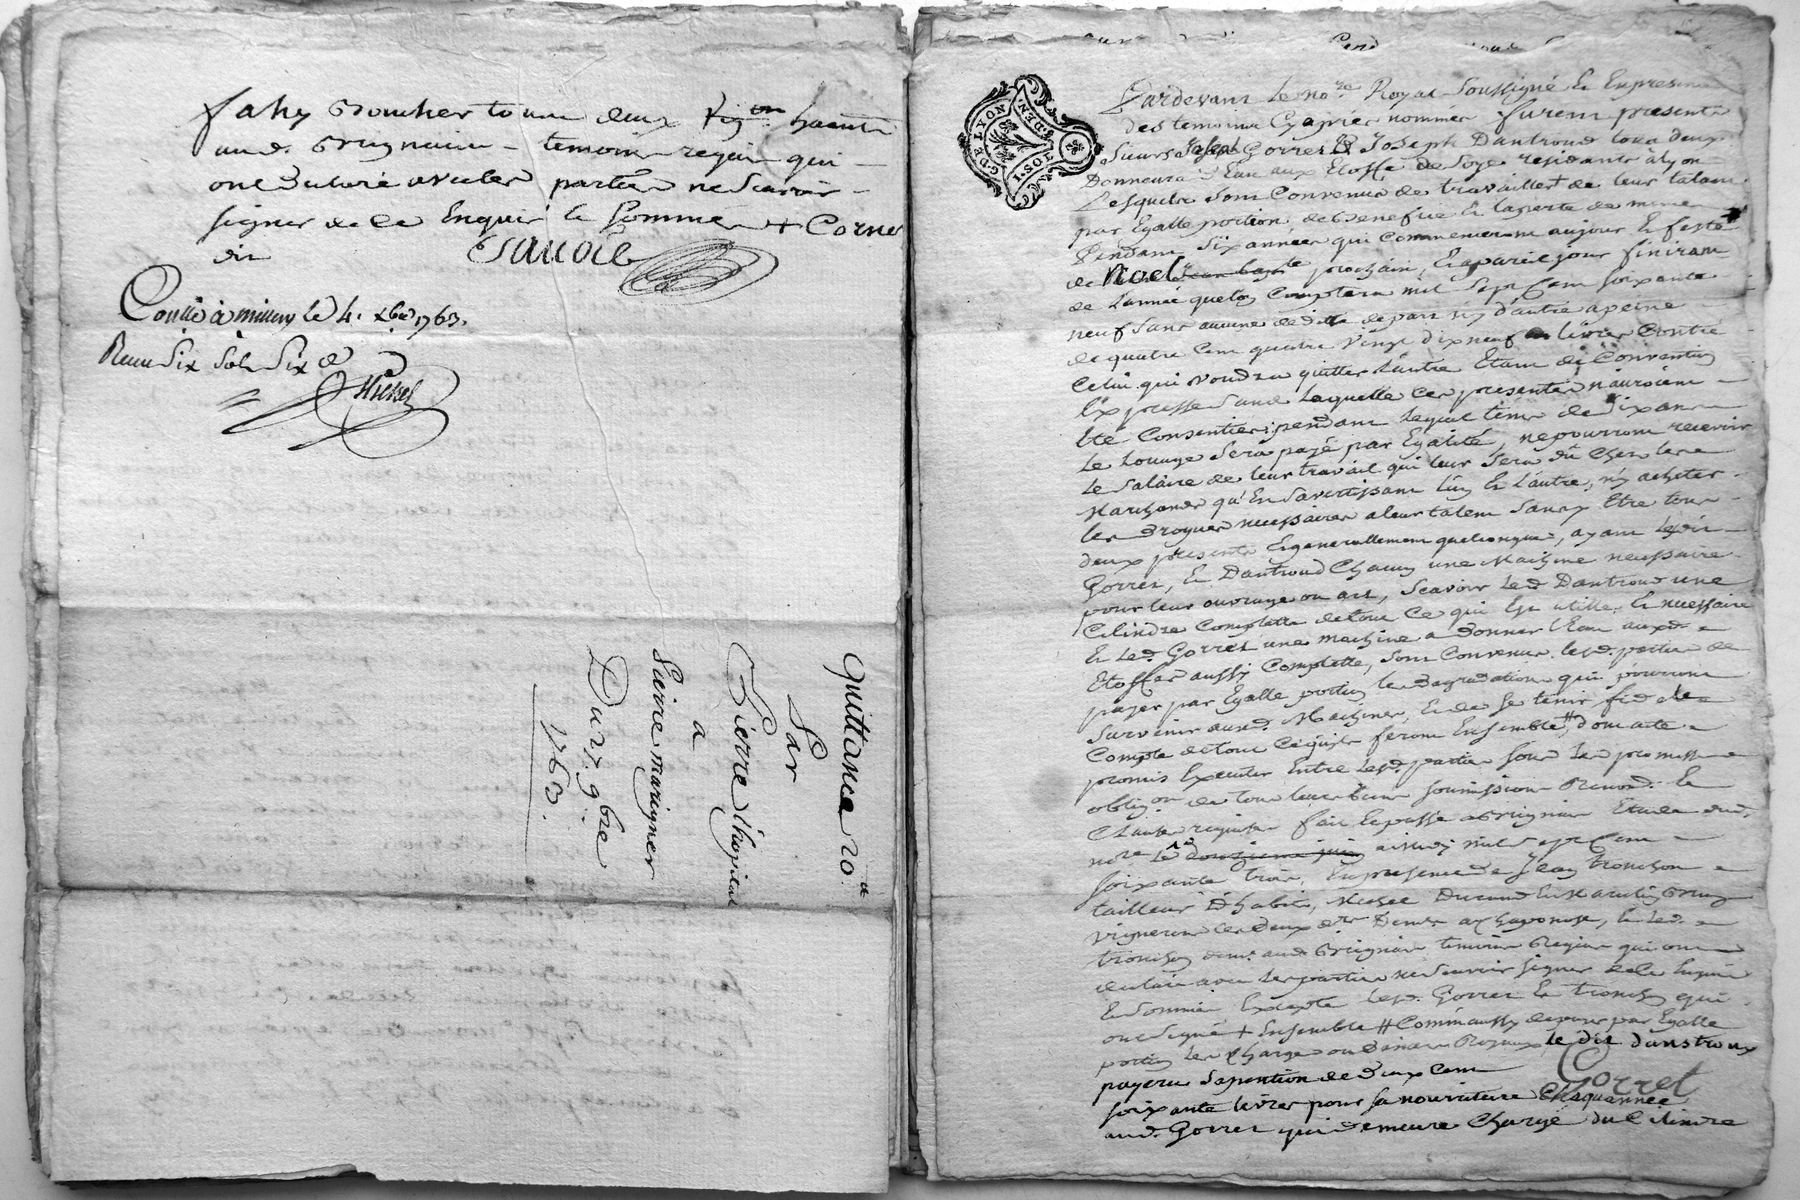 faby Boucher tous deux vigon habitants
aud. Brignais temoins requis qui
ont declaré avec les parties ne scavoir
signer de ce enquis et sommés + Cornu
dit
Controllé à millery le 4. xbre 1763.
Receu six sols six d
Quittance 20
Par
Pierre l'hopital
a
Pierre marigner
Du 27. 9bre
1763.
G. DE LYON
1. SOL
Pardevant le nore Royal soussigné et En presence
des temoins Cy apres nommés furent presents
Sieurs Joseph Gorret & Joseph Dantroud tous deux
Donneurs d'Eau aux Etoffes de Soye residants a lyon
Lesquels sont Convenus de travailler de leur talent
par Egalle portion, de benefice et la perte de meme
Pendant six années qui Commenceront aujour et feste
de Noel prochain, et a pareil jour finiront
de l'année que l'on Comptera mil sept Cent soixante
neuf sans aucune dedite de part ny d'autre a peine
de quatre Cent quatre vingt dix neuf livres Contre
Celui qui voudra quitter l'autre Etant de Convention
Expresse sans laquelle ces presentes n'auroient
Eté Consenties; pendant lequel tems de six ans
le louage sera payé par Egalité, ne pourront recevoir
le salaire de leur travail qui leur sera dû Chez les
Marchands qu'En s'avertissant l'un et l'autre, n'y acheter
les drogues necessaires a leur talent sans y Etre tous
deux presents et generallement quelconque, ayant lesdit
Gorret, et Dantroud Chacun une Machine necessaire
pour leur ouvrage ou art, Scavoir led Dantroud une
Cilindre Complette de tout Ce qui Est utille, et necessaire
et led. Gorret une machine a donner l'Eau auxd.
Etoffes aussy Complette, sont Convenus lesd. parties de
payer par Egalle portion les degradations qui pourront
survenir auxd. Machines, et de se tenir fidele
Compte de tout Ce qu'ils feront Ensemble # dont acte
promis Executer Entre lesd. parties sous les promesses
oblig.on de tous leurs biens soumissions Renond. et
Clauses requises fait et passé a Brignais Etude dud.
nore le douzieme juin a midy mil sept Cent
soixante trois, En presence de Jean tronchon
tailleur D'habits, Michel Durand et Martin Brun
vignerons les deux dern Demt a Chaponost, et led.
tronchon demt aud Brignais temoins Requis qui ont
declaré avec les parties ne scavoir signer de ce Enquis
et sommés, Excepté lesd. Gorret et tronchon qui
ont signé + Ensemble # Comm'aussy de payer par Egalle
portion les Charges ou deniers Royaux le dit dantroux
payera sa pention de deux Cent
Gorret
soixante livres pour sa nourriture Chaque année
aud. Gorret qui demeure Chargé du Cilindre